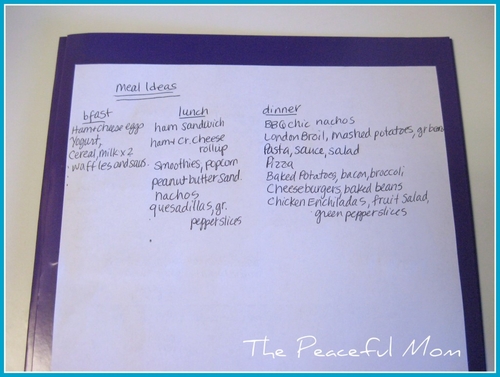 Meal Ideas
bfast
Ham+Cheese eggs
Yogurt,
Cereal, milk x 2
waffles and
lunch
ham Sandwich
ham+cr.cheese
rollup
Smoothies, popcorn
peanut butter sand.
nachos
quesadillas, gr.
pepper slices
dinner
BBQ chic nachos
London Broil, mashed potatoes, gr beans
Pasta, sauce, salad
Pizza
Baked Potatoes, bacon, broccoli
Cheeseburgers, baked beans
Chicken Enchiladas, fruit Salad,
green pepper slices
The Peaceful Mom